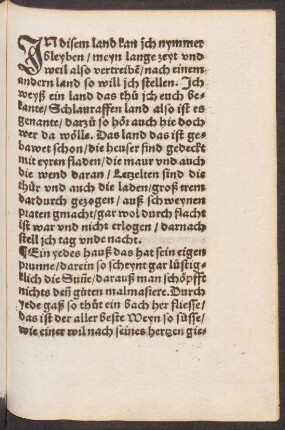 IN disem land kan jch nymmer
bleyben / meyn lange zeyt vnd
weil also vertreibē / nach einem
andern land so will jch stellen. Jch
weyß ein land das thů jch euch be-
kante / Schlauraffen land also ist es
genante / darzů so hört auch hie doch
wer da wölle. Das land das ist ge-
bawet schon / die heuser sind gedeckt
mit eyren fladen / die maur vnd auch
die wend daran / Letzelten sind die
thür vnd auch die laden / groß trem
dardurch gezogen / auß schweynen
praten gmacht / gar wol durch flacht
ist war vnd nicht erlogen / darnach
stell jch tag vnde nacht.
¶ Ein yedes hauß das hat sein eigen
prunne / darein so scheynt gar lüstig-
klich die Suñe / darauß man schöpfft
nichts deñ gůten malmasiere. Durch
yede gaß so thůt ein bach her fliesse /
das ist der aller beste Weyn so süsse /
wie einer wil nach seines hertzen gie-